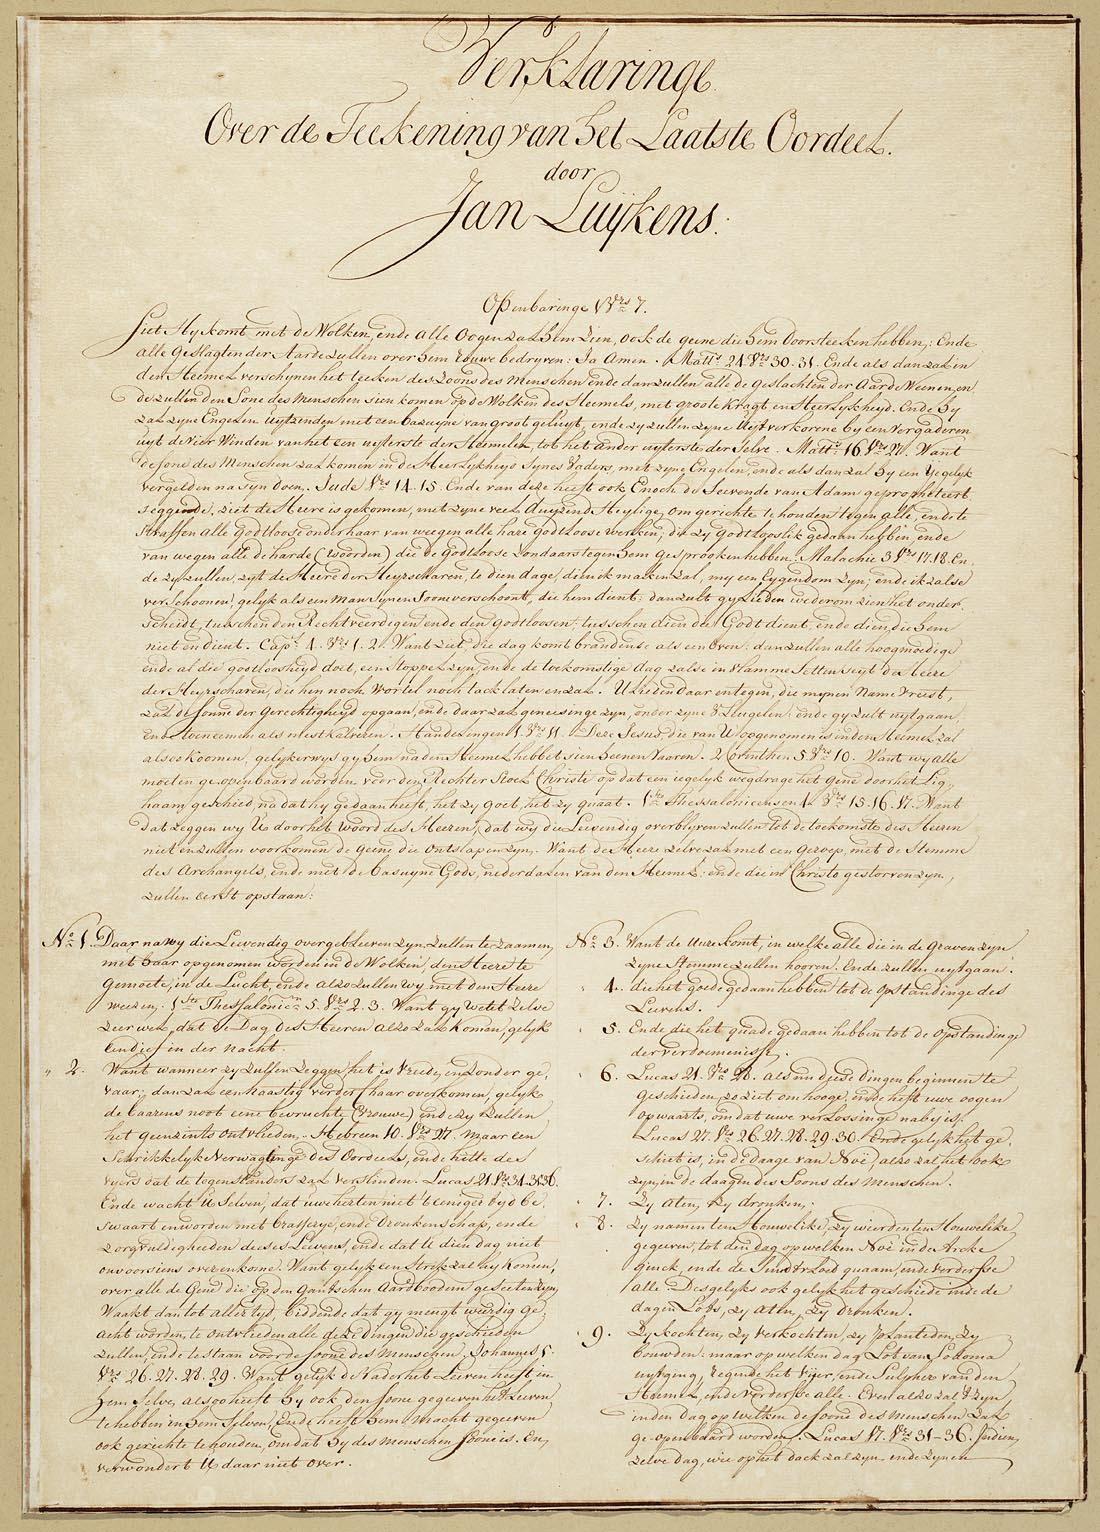 Verklaringe
Over de Teekening van het Laatste Oordeel.
door
Jan Luijkens.
Openbaringe 1 vrs 7.
Siet Hy komt met de Wolken, ende alle Oogen zal hem zien, ook de geene die hem doorsteeken hebben; Ende
alle Geslagten der Aarde zullen over hem rouwe bedryven: Ja Amen. Matts 24. vrs 30. 31. Ende als dan zal in
den Heemel verschynen het teeken des Zoons des Menschen ende dan zullen alle de geslachten der Aarde Weenen, en
de zullen den Sone des Menschen sien komen op de Wolken des Heemels, met groote Kragt en Heerlykheyd. Ende hy
zal zyne Engelen Uytzenden met een bazuyne van groot geluyt, ende zy zullen zyne Uytverkorene by een vergaderen
uyt de vier Winden van het een uyterste der Heemelen, tot het ander uyterste der selve. Matts 16 vrs 27. Want
de sone des Menschen zal komen in de Heerlykheyd Synes Vaders, met zyne Engelen, ende als dan zal hy een Yegelyk
vergelden na syn doen. Jude vrs 14. 15. Ende van deze heeft ook Enoch de Seevende van Adam gepropheteert
seggende, ziet de Heere is gekomen, met zyne veel duyzend Heylige, om gerichte te houden tegen alle, ende te
straffen alle Godtloose onder haar van weegen alle hare godtloose werken, die zy Godtlooslik gedaan hebben, ende
van wegen alle de harde (woorden) die de Godtloose Zondaars tegen hem gesprooken hebben. Malachie 3 vrs 17. 18. En
de zy zullen, zeyt de Heere der Heyrscharen, te dien dage, dien ik maken zal, my een Eygendom zyn; ende ik zal se
verschoonen, gelyk als een Man Synen Soone verschoont, die hem dient; dan zult gy Lieden wederom zien het onder,
scheidt, tusschen den Rechtveerdigen ende den godtloosen: tusschen dien die Godt dient, ende dien, die hem
niet en dient. Capl 4. vrs 1. 2. Want ziet, die dag komt brandende als een Oven: dan zullen alle hoogmoedige
ende al die godtloosheyd doet, een Stoppel zyn, ende de toekomstige dag zal se in vlamme Setten seyt de Heere
der Heyrscharen, die hen noch Wortel noch tack laten en zal. U lieden daar en tegen, die mynen Name vreest,
zal de Sonne der Gerechtigheyd opgaan, ende daar zal geneesinge zyn, onder zyne Vleugelen: ende gy zult uytgaan,
Ende toeneemen als mestkalveren. Handelingen 1. vrs 11. Deze Jesus, die van U opgenomen is in den Heemel, zal
alsoo koomen, gelykerwys gy hem na den Heemel hebbet sien heenen Vaaren. 2 Corinthen 5 vrs 10. Want wy alle
moeten geopenbaard worden voor den Rechter Stoel Christi op dat een iegelyk wegdrage het gene door het Lig,
haam geschied, na dat hy gedaan heeft, het zy goet, het zy quaat. 1ste Thessalonicensen 4. vrs 15. 16. 17. Want
dat zeggen wy U door het woord des Heeren, dat wy die Leevendig overblyven zullen tot de toekomste des Heeren
niet en zullen voorkomen de geene die ontslapen zyn. Want de Heere zelve zal met een geroep, met de Stemme
des Archangels, ende met de basuyne Gods, nederdalen van den Hemel: ende die in Christo gestorven zyn,
zullen eerst opstaan:
No. 1. Daar na wy die Leevendig overgebleeven zyn, zullen te zaamen,
met haar opgenomen worden in de Wolken, den Heere te
gemoete, in de Lucht, ende alzo zullen wy met den Heere
weezen. 1ste Thessalonicen 5. vrs 2. 3. Want gy weetet zelve
zeer wel, dat de Dag des Heeren alzo zal komen, gelyk
een dief in der nacht.
" 2. Want wanneer zy zullen zeggen, het is vreede, en zonder ge,
vaar; dan zal een haastig verderf haar overkomen, gelyk
de baarens noot eene bevruchte (vrouwe) ende zy zullen
het geenzints ontvlieden. Hebreen 10. vrs 27. Maar een
Schrikkelyk verwagtinge des Oordeels, ende hitte des
vyers dat de tegenstanders zal verslinden. Lucas 21 vrs 34. 35. 36.
Ende wacht U selven, dat uwe herten niet t'eeniger tyd be,
swaart en worden met brasserye, ende dronkenschap, ende
zorgvuldigheeden deses Leevens, ende dat U dien dag niet
onvoorsiens overkome. Want gelyk een Strik zal hy komen,
over alle de Gene die op den gantschen Aardboodem geseeten zyn,
Waakt dan tot aller tyd, biddende dat gy meugt weerdig ge,
acht worden, te ontvlieden alle deze dingen die geschieden
zullen, ende te staan voor de soone des Menschen. Johannes 5.
vrs 26. 27. 28. 29. Want gelyk de Vader het Leeven heeft, in
hem Selve, alsoo heeft hy ook den soone gegeven het Leeven
te hebben in hem Selven, Ende heeft hem Macht gegeven
ook gerichte te houden, om dat hy des menschen soone is. En,
verwondert U daar niet over.
No. 3. Want de Uure komt, in welke alle die in de Graven zyn
zyne Stemme zullen hooren. Ende zullen uytgaan.
" 4. die het goede gedaan hebben tot de Opstandinge des
Leevens.
" 5. Ende die het quade gedaan hebben tot de Opstandinge
der verdoemenisse.
" 6. Lucas 21. vrs 28. Als nu deese dingen beginnen te
geschieden, zo ziet om hooge, ende heft uwe oogen
opwaarts, om dat uwe verlossinge naby is.
Lucas 27. vrs 26. 27. 28. 29. 30. Ende gelyk het ge,
schiet is, in de daage van Noë, alzo zal het ook
zyn, in de daagen des Soons des Menschen.
" 7. Zy aten, zy dronken;
" 8. Zy namen ten Houwelike, zy wierden ten Houwelike
gegeven, tot den dag op welken Noë in de Arcke
ginck, ende de Sundtvloed quaam, ende verderfse
alle. Desgelyks ook gelyk het geschiede in de
dagen Lots, zy aten, zy dronken.
" 9. Zy kochten, zy verkochten, zy planteden, zy
bouwden: maar op welken dag Lot van Sodoma
uytging, regende het Vyer, ende Sulpher van den
Heemel, ende verderfse alle. Even alzo zal 't zyn
in den dag op welken de soone des Menschen zal
geopenbaard worden. Lucas 17. vrs 31-36. In dien
zelve dag, wie op het dack zal zyn ende zynen